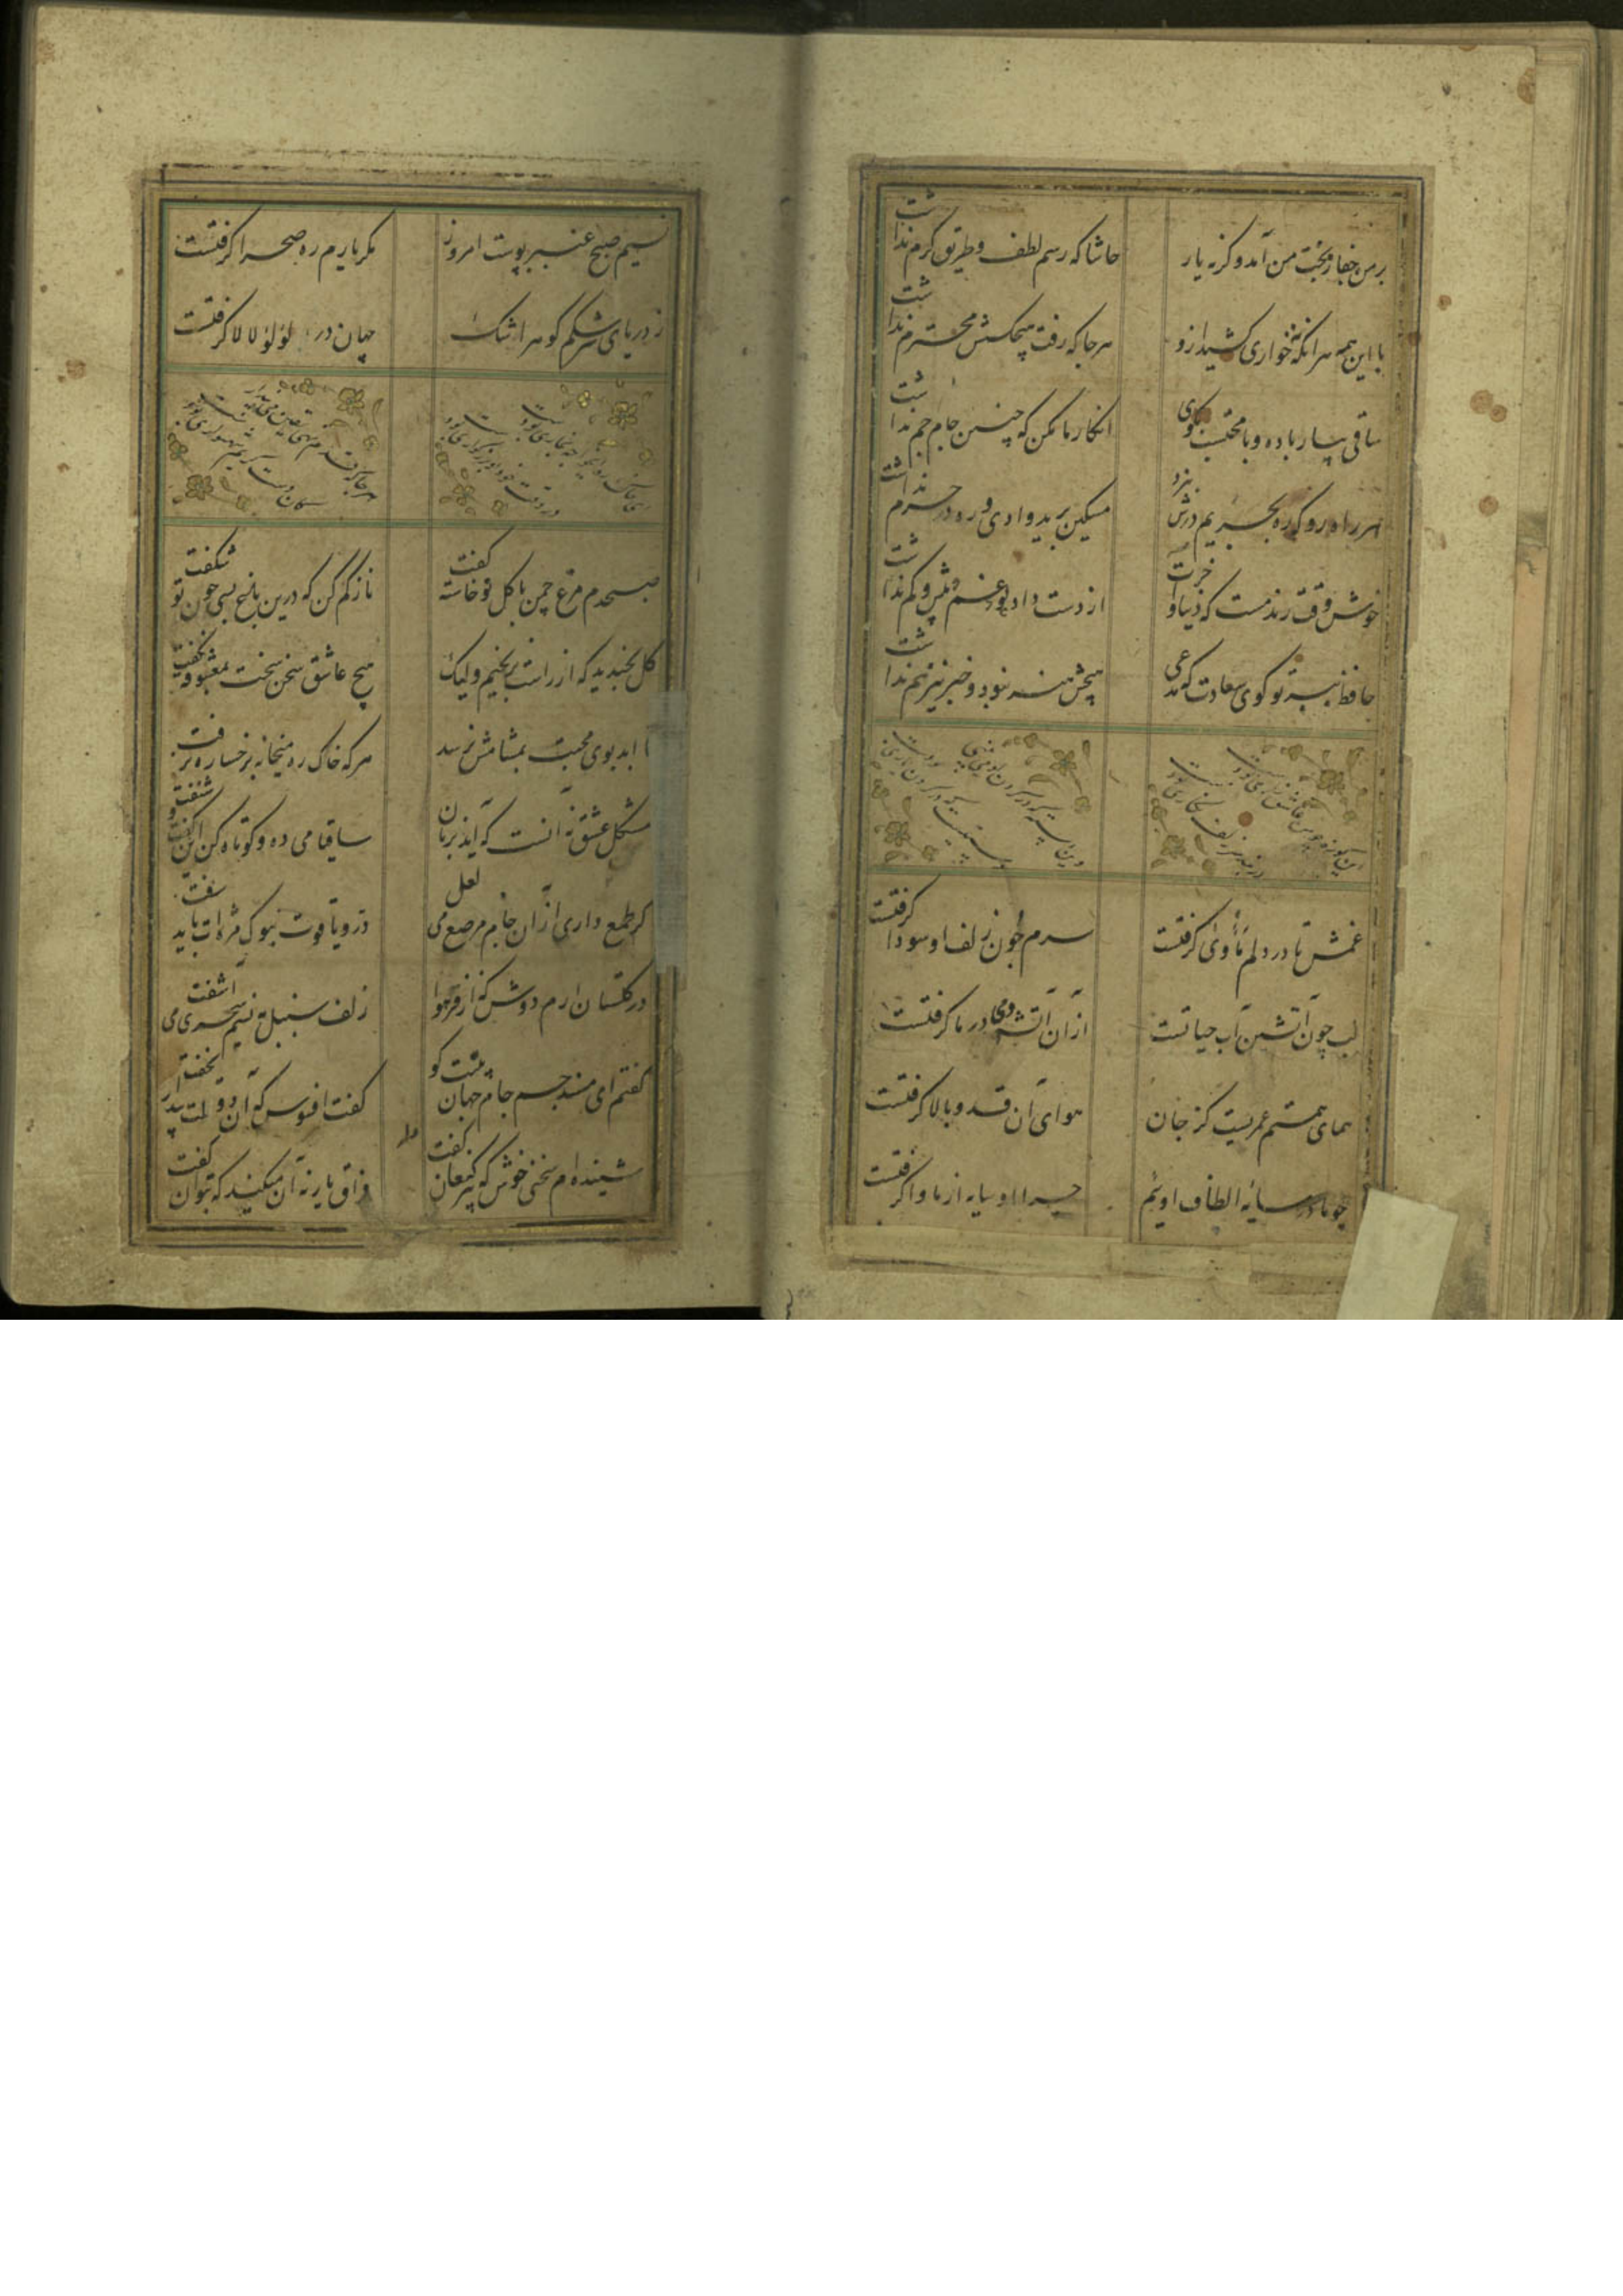 بر من جفا ز بخت من آمد وگرنه یار
حاشا که رسم لطف و طریق کرم نداشت
با این همه هر آنکه نه خواری کشید ازو
هر جا که رفت هیچکسش محترم نداشت
ساقی بیار باده و با محتسب بگوی
انکار ما مکن که چنین جام جم نداشت
هر راه رو که ره بحریم درش نبرد
مسکین برید وادی و ره در حرم نداشت
خوش وقت رند مست که دنیا و آخرت
از دست داد و هیچ غم بیش و کم نداشت
حافظ ببر تو گوی سعادت که مدعی
هیچش هنر نبود و خبر نیز هم نداشت
غمش تا در دلم مأوای گرفتست
سرم چون زلف او سودا گرفتست
لب چون آتشش آب حیاتست
از آن آب آتشی در ما گرفتست
همای همتم عمریست کز جان
هوای آن قد و بالا گرفتست
چو ما در سایهٔ الطاف اوئیم
چرا او سایه از ما وا گرفتست
نسیم صبح عنبر بوست امروز
مگر یارم ره صحرا گرفتست
ز دریای سرشکم گوهر اشک
جهان در لؤلؤ لالا گرفتست
صبحدم مرغ چمن با گل نوخاسته گفت
ناز کم کن که درین باغ بسی چون تو شکفت
گل بخندید که از راست نرنجیم ولیک
هیچ عاشق سخن سخت بمعشوق نگفت
تا ابد بوی محبت بمشامش نرسد
هر که خاک ره میخانه برخساره نرفت
مشکل عشق نه آنست که آید بزبان
ساقیا می ده و کوتاه کن این گفت و شنفت
گر طمع داری از آن جام مرصع می لعل
در و یاقوت بنوک مژه‌ات باید سفت
در گلستان ارم دوش که از فر هوا
زلف سنبل ز نسیم سحری می آشفت
گفتم ای مسند جم جام جهان بینت کو
گفت افسوس که آن دولت بیدار بخفت
شنیده‌ام سخنی خوش که پیر کنعان گفت
فراق یار نه آن میکند که بتوان گفت